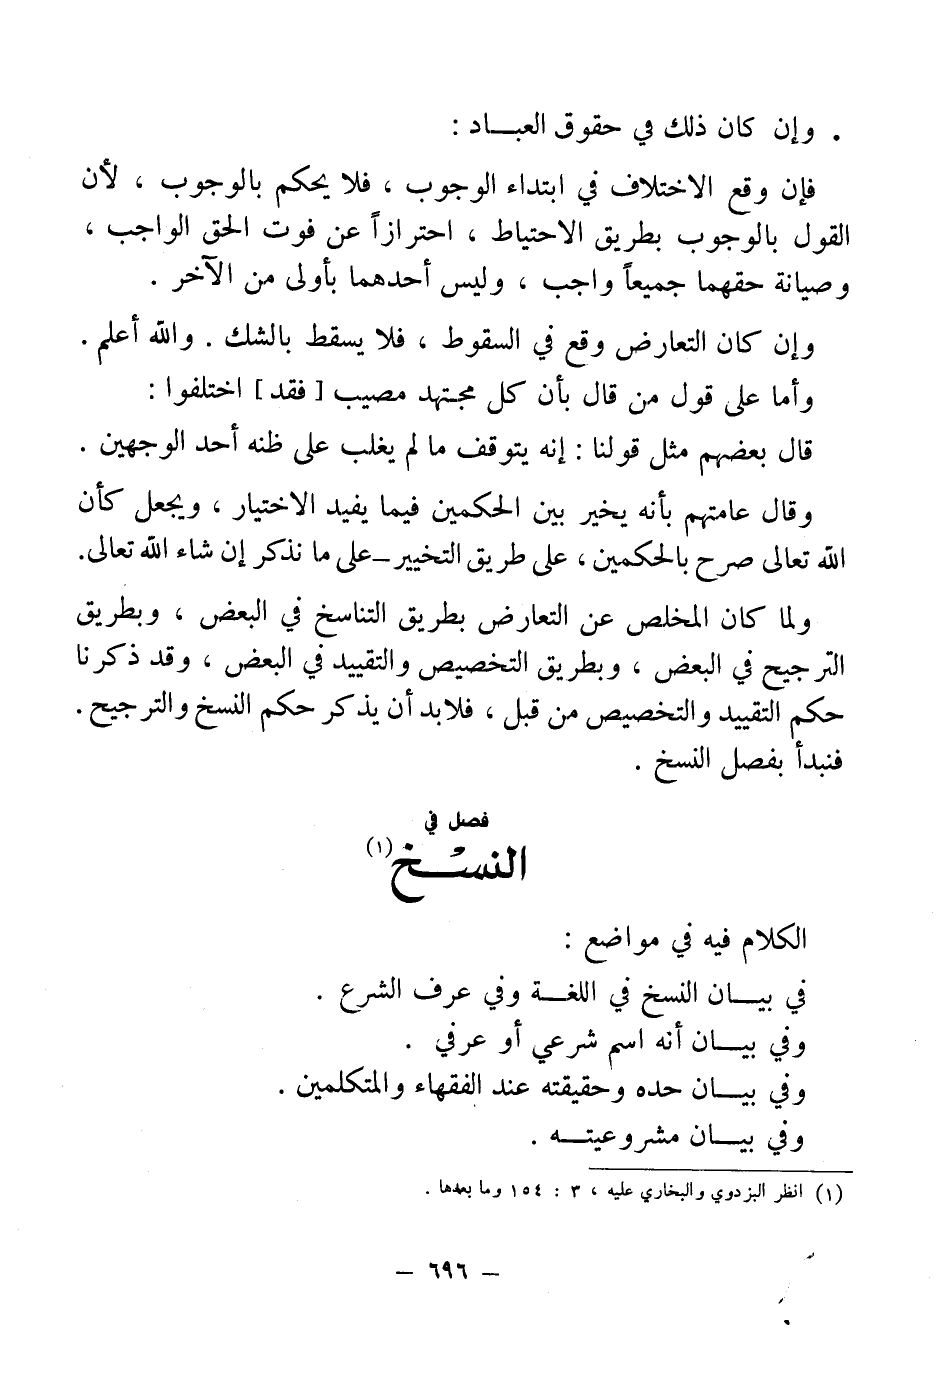 . وإن كان ذلك في حقوق العبـاد :
فإن وقع الاختلاف في ابتداء الوجوب ، فلا يحكم بالوجوب ، لأن
القول بالوجوب بطريق الاحتياط ، احترازاً عن فوت الحق الواجب ،
وصيانة حقهما جميعاً واجب ، وليس أحدهما بأولى من الآخر .
وإن كان التعارض وقع في السقوط ، فلا يسقط بالشك . والله أعلم .
وأما على قول من قال بأن كل مجتهد مصيب [ فقد ] اختلفوا :
قال بعضهم مثل قولنا : إنه يتوقف ما لم يغلب على ظنه أحد الوجهين .
وقال عامتهم بأنه يخير بين الحكمين فيما يفيد الاختيار ، ويجعل كأن
الله تعالى صرح بالحكمين ، على طريق التخيير – على ما نذكر إن شاء الله تعالى.
ولما كان المخلص عن التعارض بطريق التناسخ في البعض ، وبطريق
الترجيح في البعض ، وبطريق التخصيص والتقييد في البعض ، وقد ذكرنا
حكم التقييد والتخصيص من قبل ، فلابد أن يذكر حكم النسخ والترجيح .
فنبدأ بفصل النسخ .
فصل في
النسْـخ (١)
الكلام فيه في مواضع :
في بيـان النسخ في اللغـة وفي عرف الشرع .
وفي بيـان أنه اسم شرعي أو عرفي .
وفي بيـان حده وحقيقته عند الفقهاء والمتكلمين .
وفي بيـان مشروعيتـه .
(١) انظر البزدوي والبخاري عليه ، ٣ : ١٥٤ وما بعدها .
– ٦٩٦ –